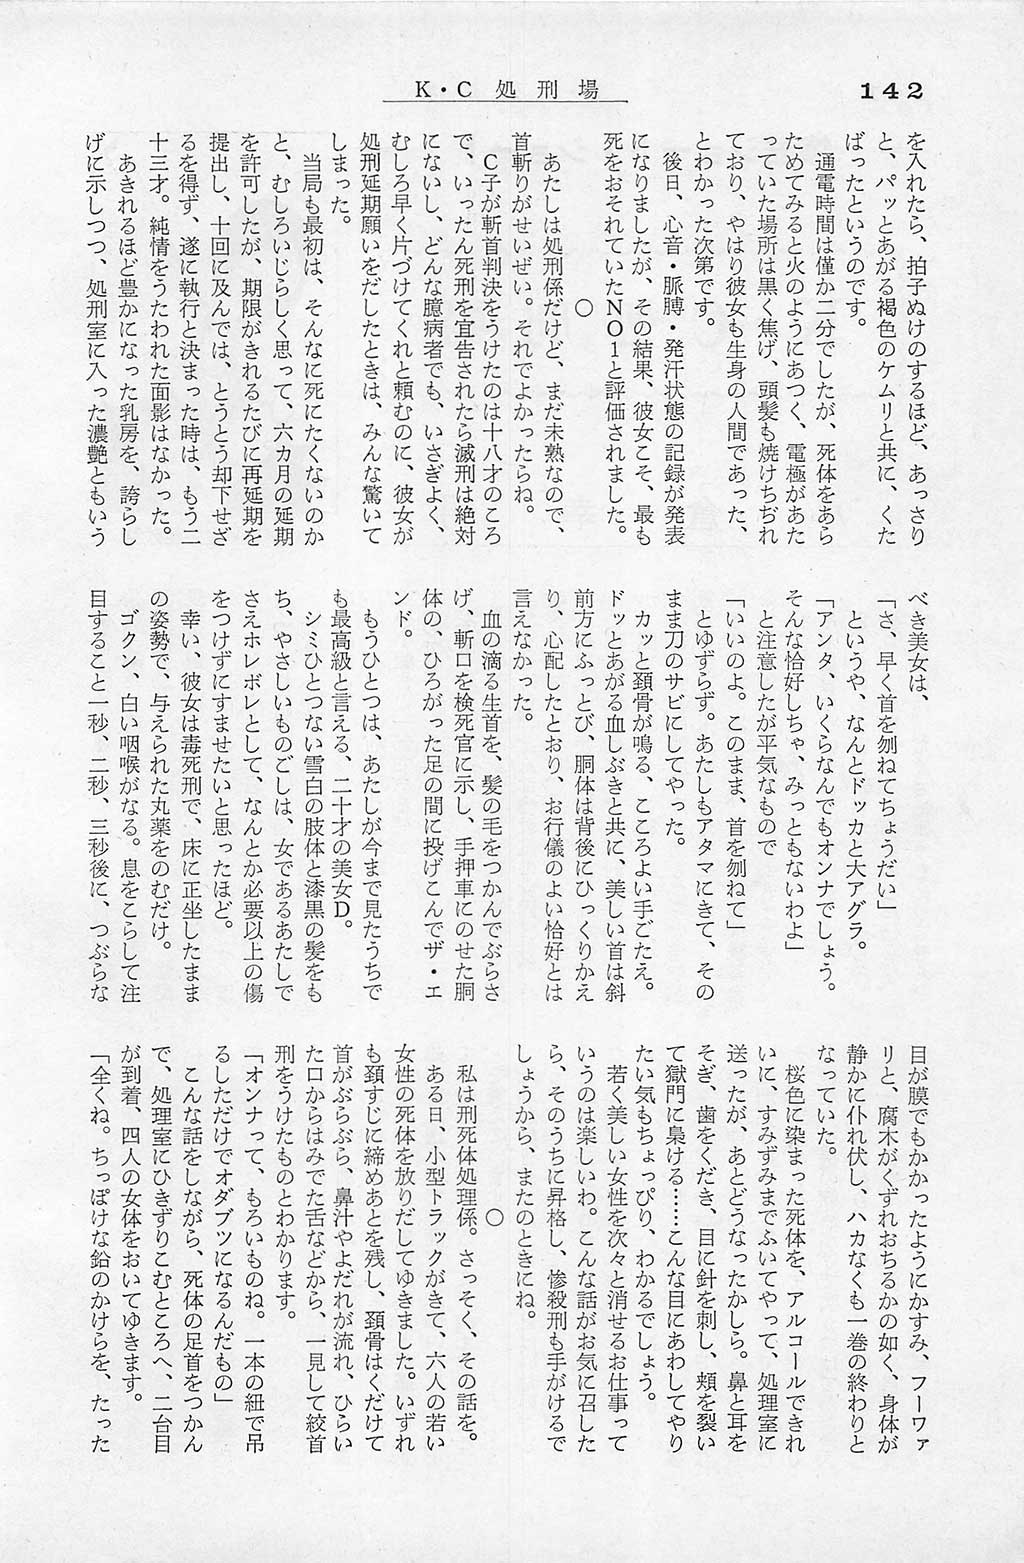 K・C処刑場
142
を入れたら、拍子ぬけのするほど、あっさり
と、パッとあがる褐色のケムリと共に、くた
ばったというのです。
通電時間は僅か二分でしたが、死体をあら
ためてみると火のようにあつく、電極があた
っていた場所は黒く焦げ、頭髪も焼けちぢれ
ており、やはり彼女も生身の人間であった、
とわかった次第です。
後日、心音・脈膊・発汗状態の記録が発表
になりましたが、その結果、彼女こそ、最も
死をおそれていたNO1と評価されました。
○
あたしは処刑係だけど、まだ未熟なので、
首斬りがせいぜい。それでよかったらね。
C子が斬首判決をうけたのは十八才のころ
で、いったん死刑を宣告されたら滅刑は絶対
にないし、どんな臆病者でも、いさぎよく、
むしろ早く片づけてくれと頼むのに、彼女が
処刑延期願いをだしたときは、みんな驚いて
しまった。
当局も最初は、そんなに死にたくないのか
と、むしろいじらしく思って、六カ月の延期
を許可したが、期限がきれるたびに再延期を
提出し、十回に及んでは、とうとう却下せざ
るを得ず、遂に執行と決まった時は、もう二
十三才。純情をうたわれた面影はなかった。
あきれるほど豊かになった乳房を、誇らし
げに示しつつ、処刑室に入った濃艶ともいう
べき美女は、
「さ、早く首を刎ねてちょうだい」
というや、なんとドッカと大アグラ。
「アンタ、いくらなんでもオンナでしょう。
そんな恰好しちゃ、みっともないわよ」
と注意したが平気なもので
「いいのよ。このまま、首を刎ねて」
とゆずらず。あたしもアタマにきて、その
まま刀のサビにしてやった。
カッと頚骨が鳴る、こころよい手ごたえ。
ドッとあがる血しぶきと共に、美しい首は斜
前方にふっとび、胴体は背後にひっくりかえ
り、心配したとおり、お行儀のよい恰好とは
言えなかった。
血の滴る生首を、髪の毛をつかんでぶらさ
げ、斬口を検死官に示し、手押車にのせた胴
体の、ひろがった足の間に投げこんでザ・エ
ンド。
もうひとつは、あたしが今まで見たうちで
も最高級と言える、二十才の美女D。
シミひとつない雪白の肢体と漆黒の髪をも
ち、やさしいものごしは、女であるあたしで
さえホレボレとして、なんとか必要以上の傷
をつけずにすませたいと思ったほど。
幸い、彼女は毒死刑で、床に正坐したまま
の姿勢で、与えられた丸薬をのむだけ。
ゴクン、白い咽喉がなる。息をこらして注
目すること一秒、二秒、三秒後に、つぶらな
目が膜でもかかったようにかすみ、フーワァ
リと、腐木がくずれおちるかの如く、身体が
静かに仆れ伏し、ハカなくも一巻の終わりと
なっていた。
桜色に染まった死体を、アルコールできれ
いに、すみずみまでふいてやって、処理室に
送ったが、あとどうなったかしら。鼻と耳を
そぎ、歯をくだき、目に針を刺し、頬を裂い
て獄門に梟ける……こんな目にあわしてやり
たい気もちょっぴり、わかるでしょう。
若く美しい女性を次々と消せるお仕事って
いうのは楽しいわ。こんな話がお気に召した
ら、そのうちに昇格し、惨殺刑も手がけるで
しょうから、またのときにね。
○
私は刑死体処理係。さっそく、その話を。
ある日、小型トラックがきて、六人の若い
女性の死体を放りだしてゆきました。いずれ
も頚すじに締めあとを残し、頚骨はくだけて
首がぶらぶら、鼻汁やよだれが流れ、ひらい
た口からはみでた舌などから、一見して絞首
刑をうけたものとわかります。
「オンナって、もろいものね。一本の紐で吊
るしただけでオダブツになるんだもの」
こんな話をしながら、死体の足首をつかん
で、処理室にひきずりこむところへ、二台目
が到着、四人の女体をおいてゆきます。
「全くね。ちっぽけな鉛のかけらを、たった